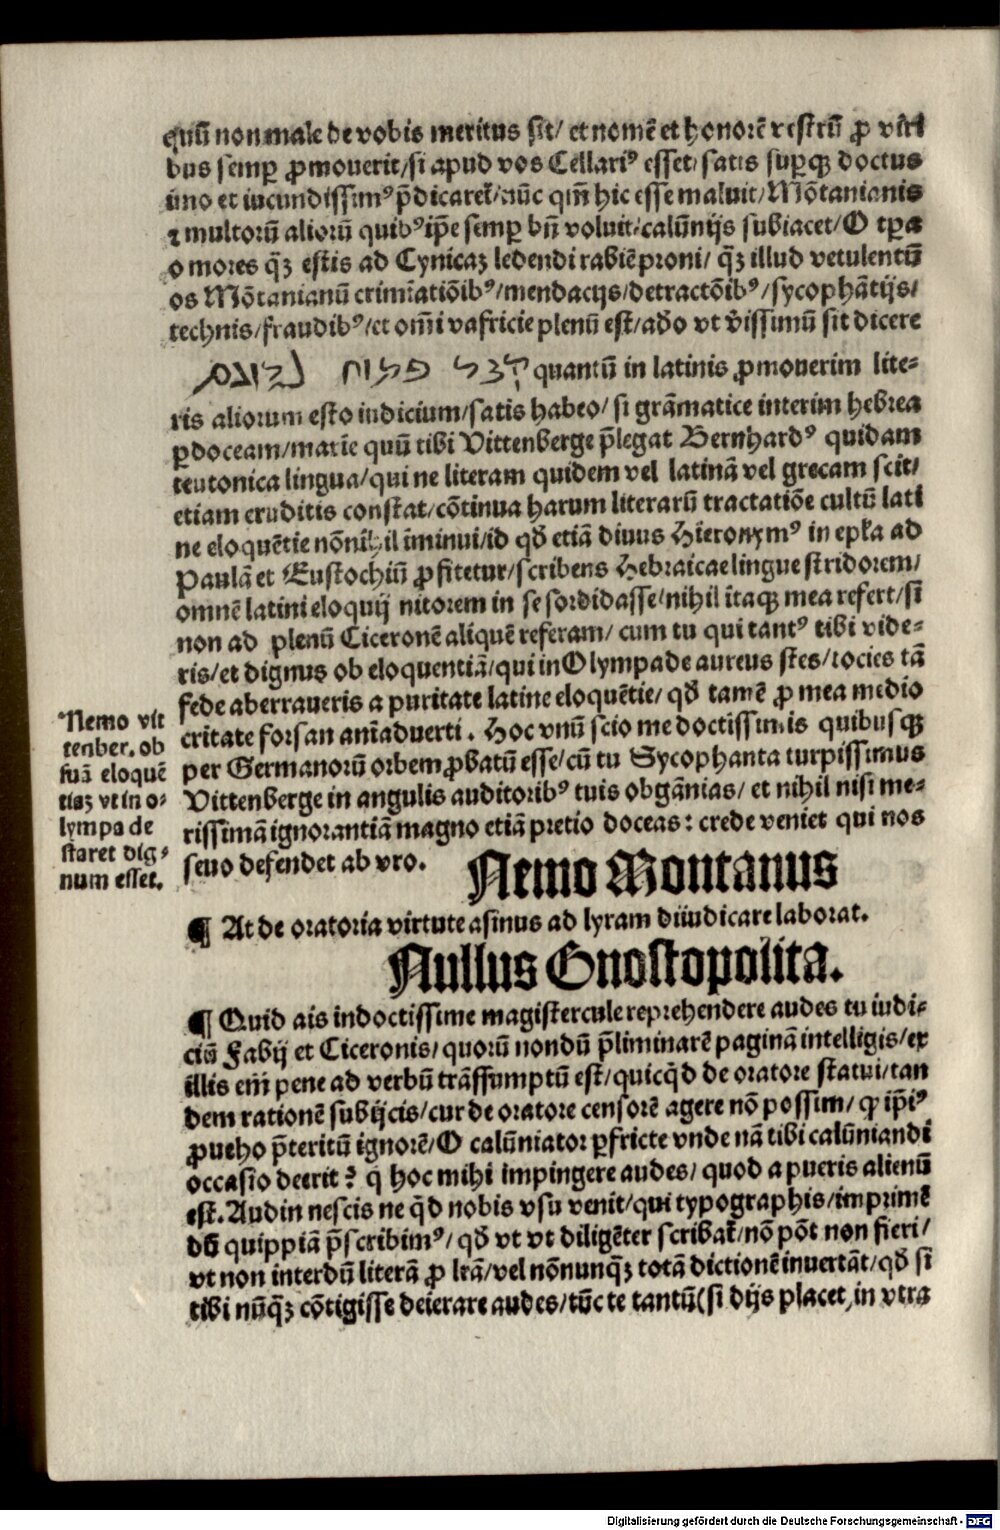 quū non male de vobis meritus sit/ et nomē et honorē vestrū ꝓ viri
bus semꝑ ꝓmouerit/si apud vos Cellariꝰ esset/ satis suꝑqꝫ doctus
imo et iucundissimꝰ p̄dicaret̄/nūc qm̄ hic esse maluit/Mōtanianis
⁊ multorū aliorū quibꝰ ip̄e semꝑ bn̄ voluit/calūnijs subiacet/O tꝑa
o mores q̄ꝫ estis ad Cynicaꝫ ledendi rabiē proni/ q̄ꝫ illud vetulentū
os Mōtanianū crimīatiōibꝰ/mendacijs/detractōibꝰ/sycophātijs/
technis/fraudibꝰ/et om̄i vafricie plenū est/ adō vt v̄issimū sit dicere
quantū in latinis ꝓmouerim lite⸗
ris aliorum esto iudicium/satis habeo/ si grāmatice interim hebrea
ꝑdoceam/matie quū tibi Vittenberge p̄legat Bernhardꝰ quidam
teutonica lingua/qui ne literam quidem vel latinā vel grecam scit/
etiam eruditis constat/cōtinua harum literarū tractatiōe cultū lati
ne eloquētie nōnihil iminui/id qđ etiā diuus Hieronymꝰ in epl̄a ad
Paulā et Eustochiū ꝓfitetur/scribens Hebraicae lingue stridorem/
omnē latini eloquij nitorem in se sordidasse/nihil itaqꝫ mea refert/si
non ad plenū Ciceronē aliquē referam/ cum tu qui tantꝰ tibi vide⸗
ris/et dignus ob eloquentiā/qui in Olympade aureus stes/tocies tā
fede aberraueris a puritate latine eloquētie/ qđ tamē ꝓ mea medio
critate forsan aīaduerti. Hoc vnū scio me doctissimis quibusqꝫ
per Germanorū orbem ꝓbatū esse/cū tu Sycophanta turpissimus
Vittenberge in angulis auditoribꝰ tuis obgānias/ et nihil nisi me⸗
rissimā ignorantiā magno etiā pretio doceas: crede veniet qui nos
seuo defendet ab vro.
Nemo vit
tenber. ob
suā eloquē
tiaꝫ vt in o⸗
lympa de
staret dig⸗
num esset.
Nemo Montanus
¶ At de oratoria virtute asinus ad lyram diiudicare laborat.
Nullus Gnostopolita.
¶ Quid ais indoctissime magistercule reprehendere audes tu iudi⸗
ciū Fabij et Ciceronis/ quorū nondū p̄liminarē paginā intelligis/ex
illis em̄ pene ad verbū trāssumptū est/quicq̄d de oratore statui/tan
dem rationē subijcis/cur de oratore censorē agere nō possim/ ꝙ ip̄iꝰ
ꝓueho p̄teritū ignorē/O calūniator ꝑfricte vnde nā tibi calūniandi
occasio deerit? q̄ hoc mihi impingere audes/ quod a pueris alienū
est. Audin nescis ne q̄d nobis vsu venit/qui typographis/imprimē
dū quippiā p̄scribimꝰ/ qđ vt vt diligēter scribat̄/nō pōt non fieri/
vt non interdū literā ꝓ lr̄a/vel nōnunq̄ꝫ totā dictionē inuertāt/qđ si
tibi nūq̄ꝫ cōtigisse deierare audes/tūc te tantū(si dijs placet/in vtra
Digitalisierung gefördert durch die Deutsche Forschungsgemeinschaft - DFG